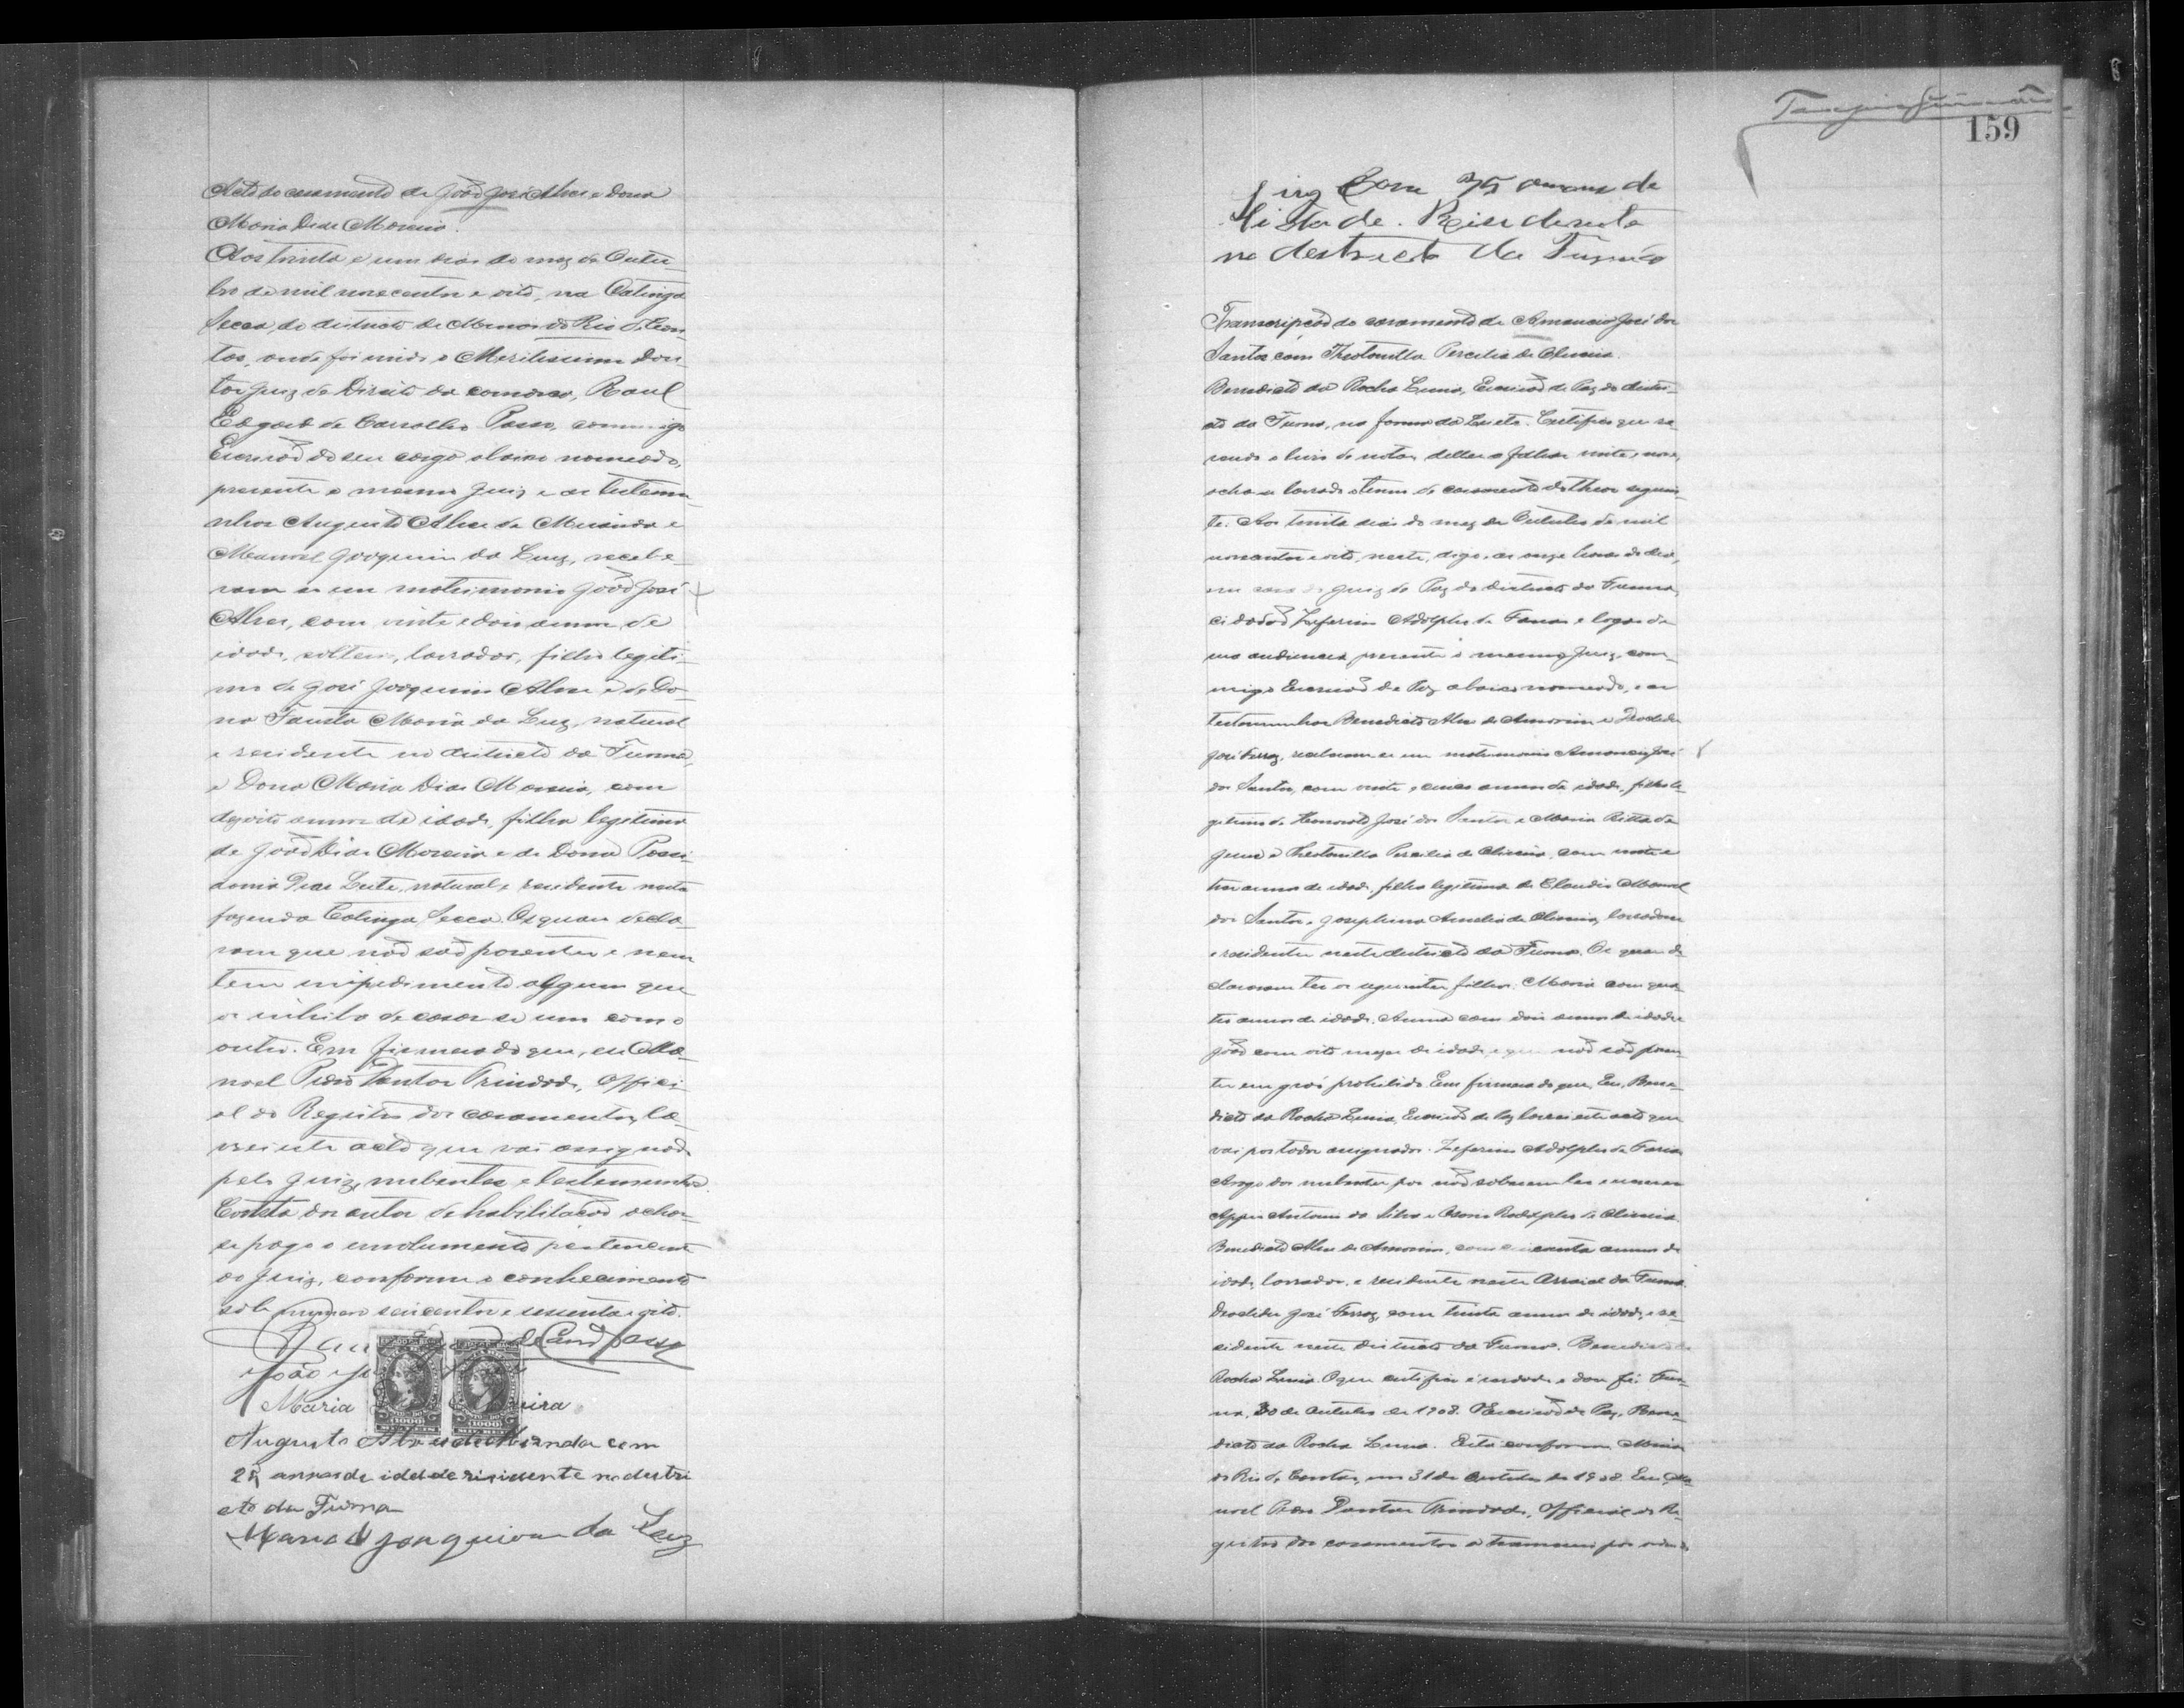 Acto do casamento de João José Alves e Dona
Maria Dias Moreira.
Aos trinta e um dias do mez de Outu-
bro de mil novecentos e oito, na Catinga
Secca, do districto de Minas do Rio de Con-
tas, onde foi vindo o Meritissimo Dou-
tor Juiz de Direito da comarca, Raul
Edgard de Carvalho Passo, commigo
Escrivão do seu cargo abaixo nomeado,
presente o mesmo Juiz e as testemu-
nhas Augusto Alves de Miranda e
Manoel Joaquim da Luz, recebe-
ram se em matrimonio João José
Alves, com vinte e dois annos de
idade, solteiro, lavrador, filho legiti-
mo de José Joaquim Alves e de Do-
na Fausta Maria da Luz, natural
e residente no districto da Furna,
e Dona Maria Dias Moreira, com
dezoito annos de idade, filha legitima
de João Dias Moreira e de Dona
Dias Leite, natural e residente nesta
fazenda Catinga Secca. Os quaes decla-
ram que não são parentes e nem
tem impedimento algum que
os inhiba de casar se um com o
outro. Em firmesa do que, eu Ma-
noel Pedro Dantas Trindade, Offici-
al do Registro dos casamentos, la-
vrei este acto que vai assignado
pelo Juiz, nubentes e testemunhas.
Consta dos autos de habilitação achar-
se pago o emolumento pertencente
ao Juiz, conforme o conhecimento
sob numero seiscentos e sessenta e oito.
João José
Maria
Augusto Alves de Miranda com
annos de idade risidente no destri
cto da Furna
Manoel Joaquim da Luz
159
com annos de
idade. Residente
no destricto da Furna
Transcripção do casamento de Amancio José dos
Santos com Theotonilla Percilia de Oliveira.
Benedicto da Rocha Lima, Escrivão de Paz do distri-
cto da Furna, na forma da Lei etc. Certifico que re-
vendo o livro de notas, delle a folhas vinte e nove,
acha-se lavrado o termo de casamento do theor seguin-
te: Aos trinta dias do mez de Outubro de mil
novecentos e oito, neste, digo, as onze horas do dia,
em casa do Juiz de Paz do districto da Furna,
cidadão Zeferino Adolpho de Farias e logar de
sua audiencia presente o mesmo Juiz, com-
migo Escrivão de Paz abaixo nomeado, e as
testemunhas Benedicto Alves de Amorim e Deoclides
José Ferraz, receberam se em matrimonio Amancio José
dos Santos, com vinte e cinco annos de idade, filho le-
gitimo de Honorato José dos Santos e Maria Ritta de
Jesus e Theotonilla Percilia de Oliveira, com vinte e
tres annos de idade, filha legitima de Claudio Manoel
dos Santos e Josephina Amelia de Oliveira, lavradores
e residentes neste districto da Furna. Os quaes de-
clararam ter os seguintes filhos: Maria com qua-
tro annos de idade, Anna com dois annos de idade e
João com oito mezes de idade, e que não são paren-
tes em gráo prohibido. Em firmesa do que, Eu, Bene-
dicto da Rocha Lima, Escrivão de Paz lavrei este acto que
vai por todos assignados. Zeferino Adolpho de Farias
Arogo dos nubentes por não saberem ler e escrever
Antonio da Silva e Rodolpho de Oliveira.
Benedicto Alves de Amorim, com cincoenta annos de
idade, lavrador, e residente neste Arraial da Furna.
Deoclides José Ferraz, com trinta annos de idade, e re-
sidente neste districto da Furna. Benedicto da
Rocha Lima. O que certifico é verdade e dou fé. Fur-
na, 30 de Outubro de 1908. O Escrivão de Paz, Bene-
dicto da Rocha Lima. Está conforme. Minas
do Rio de Contas, em 31 de Outubro de 1908. Eu, Ma-
noel Pedro Dantas Trindade, Official do Re-
gistro dos casamentos a transcrevi por ordem do